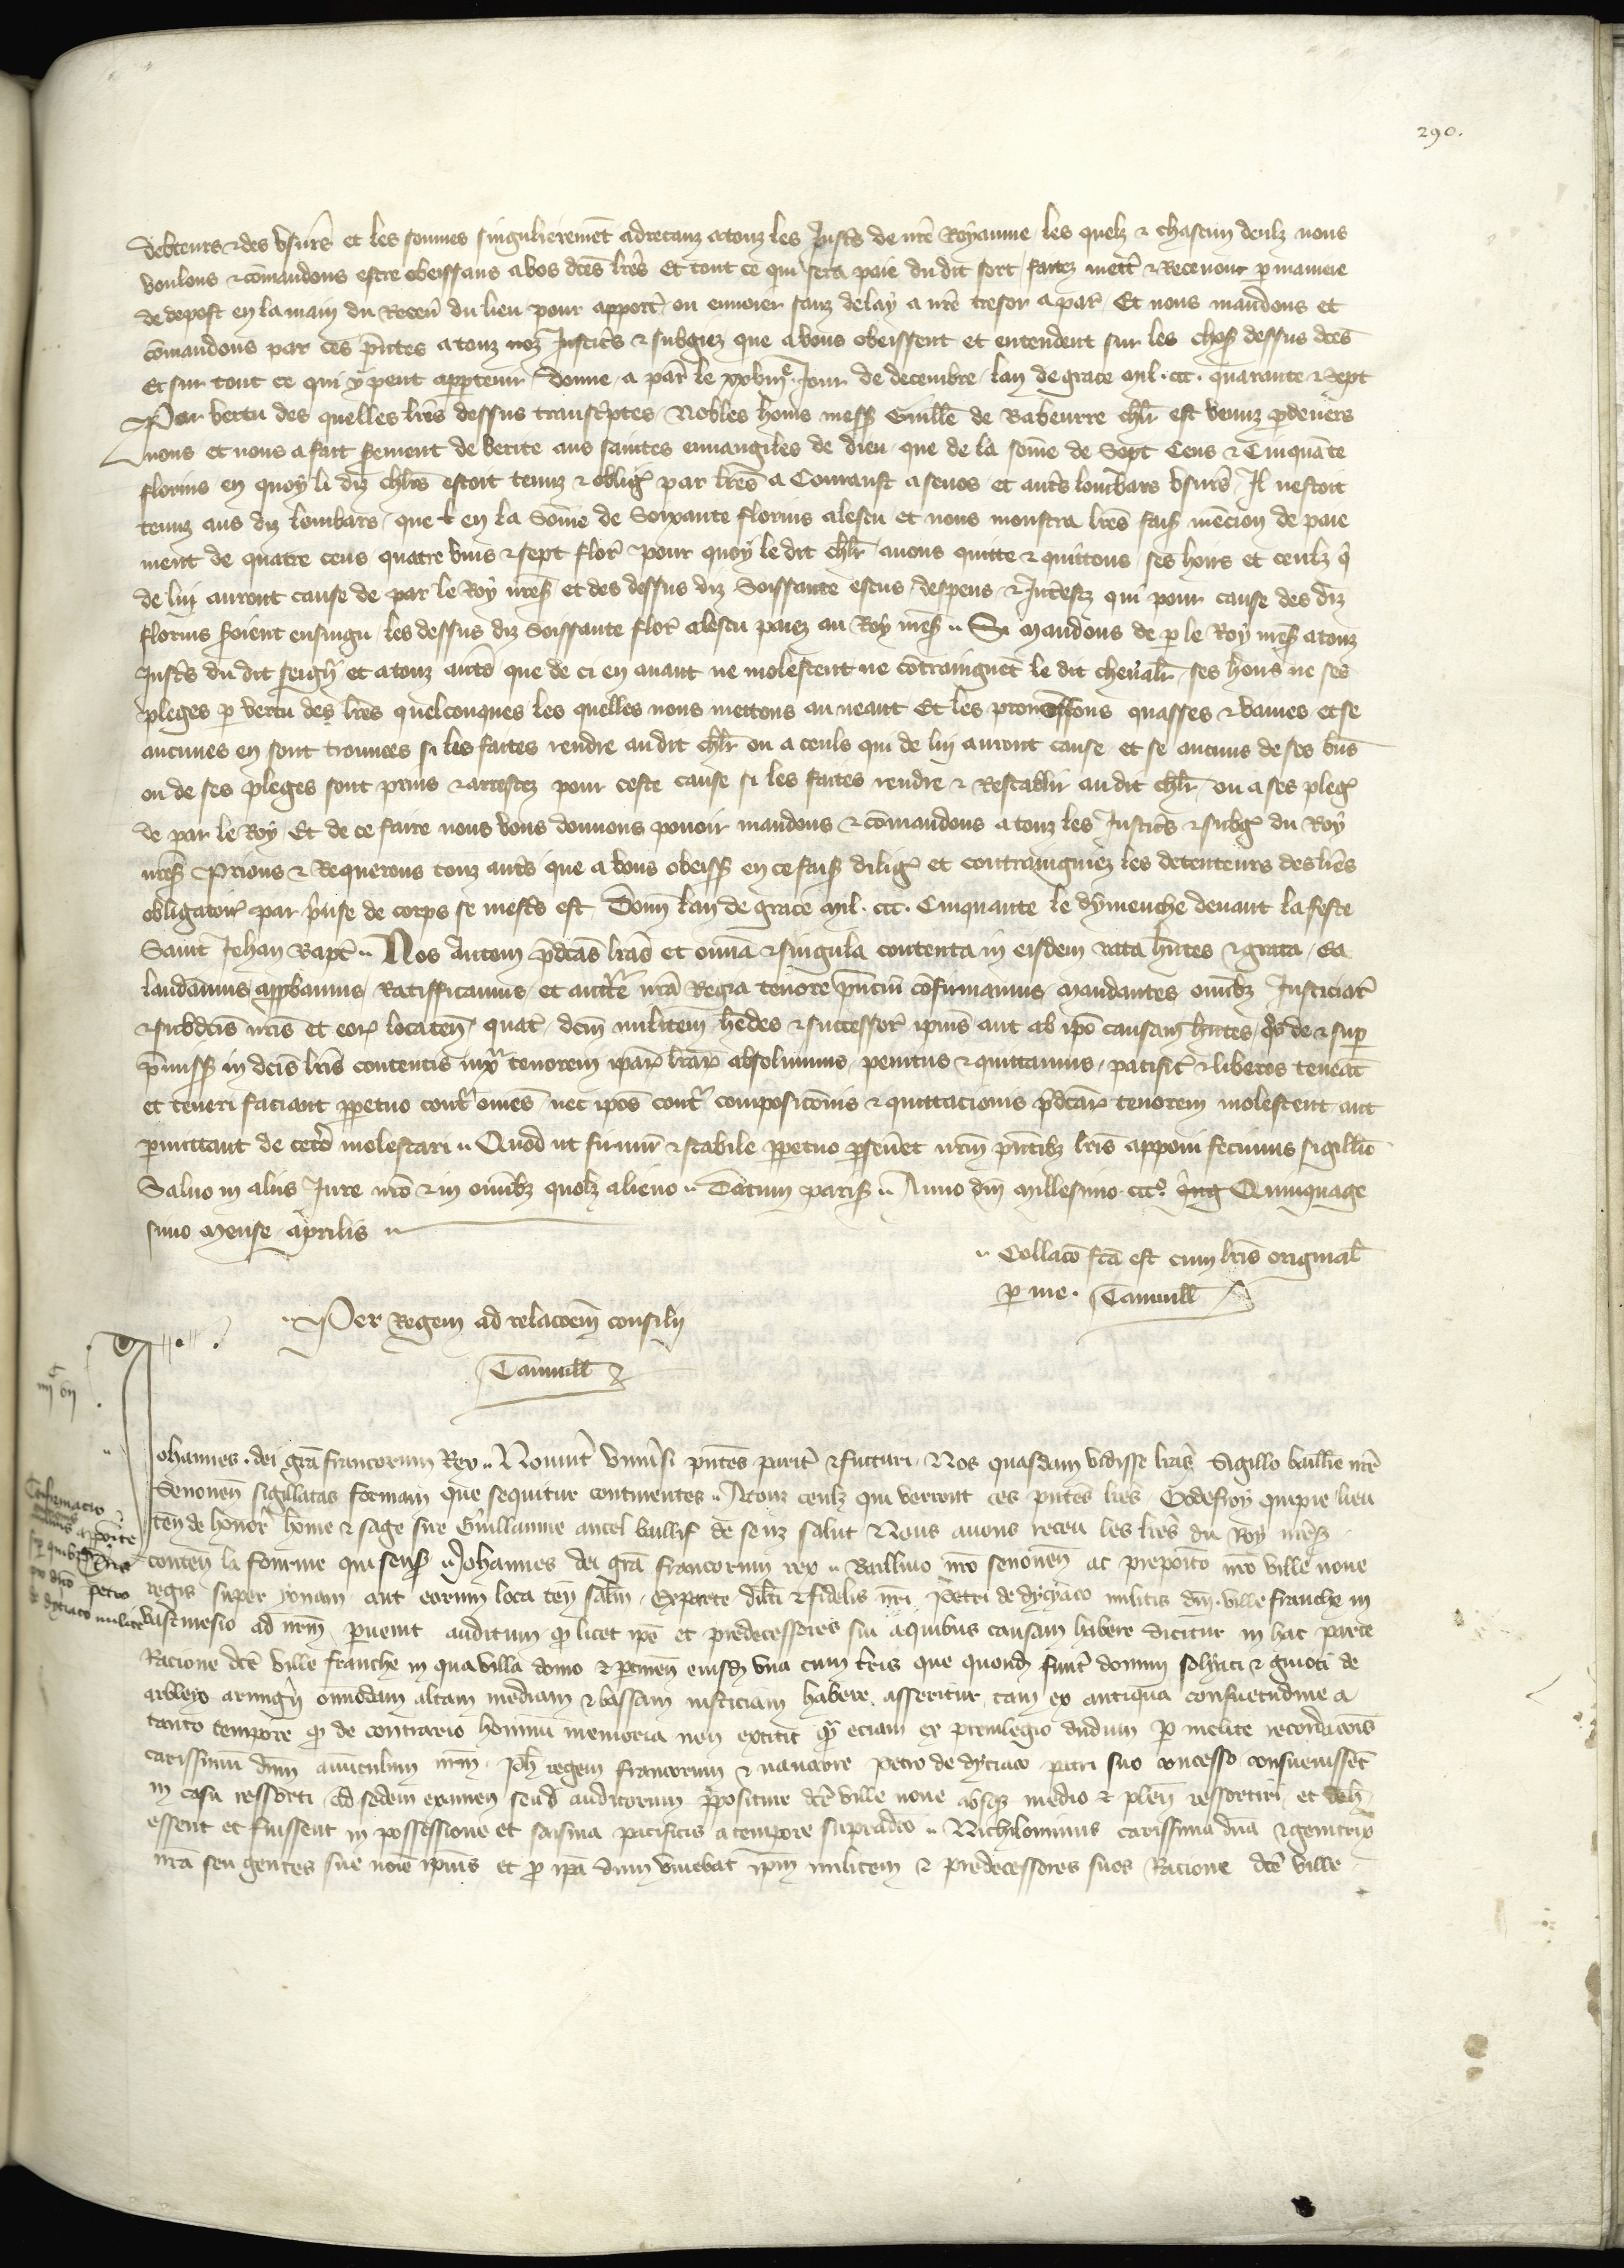 290.
debteurs & des usures et les sommes singulierement adrecanz a touz les Justs de nre Royaume les quelz & chascun deulz nous
voulons & comandons estre obeissans a vos dces lres Et tout ce qui sera paie du dit sort faites mettr & Recevoir p maniere
de depost en la main du Recev du lieu pour apporter ou envoier sanz delay a nre tresor a par Et nous mandons et
comandons par ces pntes a touz noz Justiciers & subgiez que a vous obeissent et entendent sur les choses dessus dces
Et sur tout ce qui y peut appartenir Donne a par le xxviiie Jour de decembre lan de grace mil ccc quarante & Sept
Par vertu des quelles lres dessus transcriptes Nobles homs mess Guille de Rabeurre chlr est venuz p devers
nous et nous a fait serment de verite aus saintes euvangiles de dieu que de la some de Sept Cens & Cinquante
florins en quoy li diz chlrs estoit tenuz & oblig par lres a Conrauft asevos et autrs lombars usurs Il nestoit
tenuz aus diz lombars que en la Some de Soixante florins a lescu et nous monstra lres fais mencion de paie
ment de quatre cens quatre vins & sept flor pour quoy le dit chlr avons quitte & quittons ses hoirs et ceulz q
de lui auront cause de par le Roy nres et des dessus diz Soissante escus despens & Interestz qui pour cause des diz
florins soient ensuigu les dessus diz Soissante flor a lescu paiez au Roy nres Si Mandons de p le Roy nres a touz
Justs du dit seigr et a touz autrs que de ci en avant ne molestent ne contraingnet le dit chevalr ses hoirs ne ses
pleges p vertu des lres quelconques les quelles nous mettons au neant Et les prononssons quasses & vaines et se
aucunes en sont trouvees si les faites rendre au dit chlr ou a ceuls qui de lui auront cause et se aucuns de ses bns
ou de ses pleges sont prins & arrestez pour ceste cause si les faites rendre & Restablir au dit chlr ou a ses pleg
de par le Roy Et de ce faire nous vous donnons povoir mandons & comandons a touz les Justicrs & subg du Roy
nres Prions & Requerons touz autrs que a vous obeiss en ce fais dilig et contraingniez les detenteurs des lres
obligatoir par prise de corps se mests est Donn lan de grace Mil ccc Cinquante le dymenche devant la feste
Saint Jehan Bapt Nos Autem pdcas lras et omia & singula contenta in eisdem rata hntes & grata ea
laudamus approbamus Ratifficamus et auctte nra Regia tenore pncium cofirmamus Mandantes omibz Justiciar
& subdcis nris et eor locaten quat dcm militem hedes & successor ipius aut ab ipo causam hntes quos de & sup
pmiss in dcis lris contentis iux tenorem ipar lrar absolvimus penitus & quittamus pacific & liberos teneat
et teneri faciant ppetuo contr omes nec ipos contr composiconis & quittacionis pdcar tenorem molestent aut
pmittant de cetero molestari Quod ut firmu & stabile ppetuo pseveret nrm pntibz lris apponi fecimus sigillu
Salvo in aliis Jure nro & in omibz quolz alieno Datum paris Anno dni Millesimo ccco Quinquage
simo Mense Aprilis
Collaco fca est cum lris original
p me Tannuill
Per Regem ad relacoem consilii
Tannuill
Confirmacio
Johannes dei gra francorum Rex Novint univsi pntes parit & futuri Nos quasdam vidisse lras Sigillo baillie nre
Senonen sigillatas formam que sequitur continentes A touz ceulz qui verront ces pntes lres Godefroy quipie lieu
ten de honor home & sage sire Guillaume ancel baillif de senz salut Nous avons receu les lres du Roy nres
conten la fourme qui sens Johannes dei gra francorum rex Baillivo nro senonen ac preposito nro ville nove
regis super yonam aut eorum loca ten saltm Ex parte dilti & fidelis nri Petri de dyciaco militis dni ville franche in
Vastinesio ad nrm pvenit auditum q licet ipe et predecessores sui a quibus causam habere dicitur in hac parte
Racione dce ville franche in qua villa domo & ptinen eiusd una cum terris que quond fuert domini solyaci & guioti de
arbleyo armigi omnodam altam mediam & bassam iusticiam habere asseritur tam ex antiqua consuetudine a
tanto tempore q de contrario hominu memoria non extitit qua eciam ex previlegio dudum p inclite recordacois
carissimu dnm avunculum nrm Joh regem francorum & navarre petro de dyciaco patri suo concesso consuevissent
in casu ressorti Ad sedem examen seud auditorum prepositure dce ville nove absqz medio & plen ressortiri et
essent et fuissent in possessione et saisina pacificis a tempore supradco Nichilominus carissima dna & genitrix
nra seu gentes sue noie ipius et p ipa dum vivebat ipm militem & predecessores suos Racione dce ville